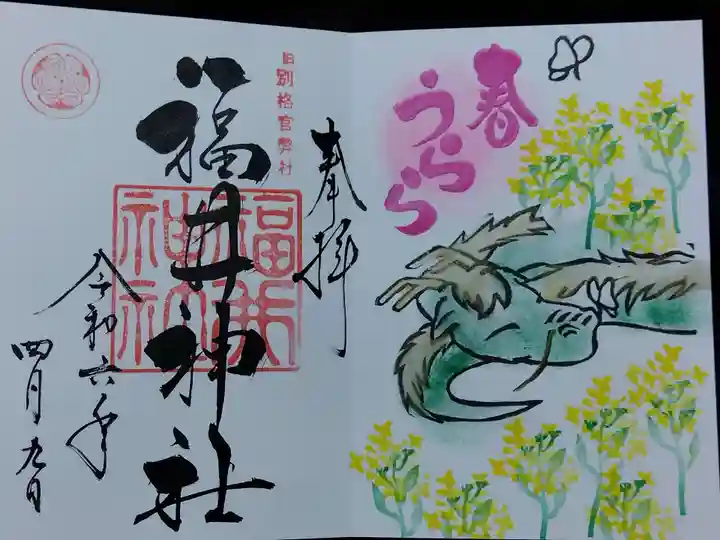 春
うらら
奉拝
旧別格官幣社
福井神社
令和六年
四月九日